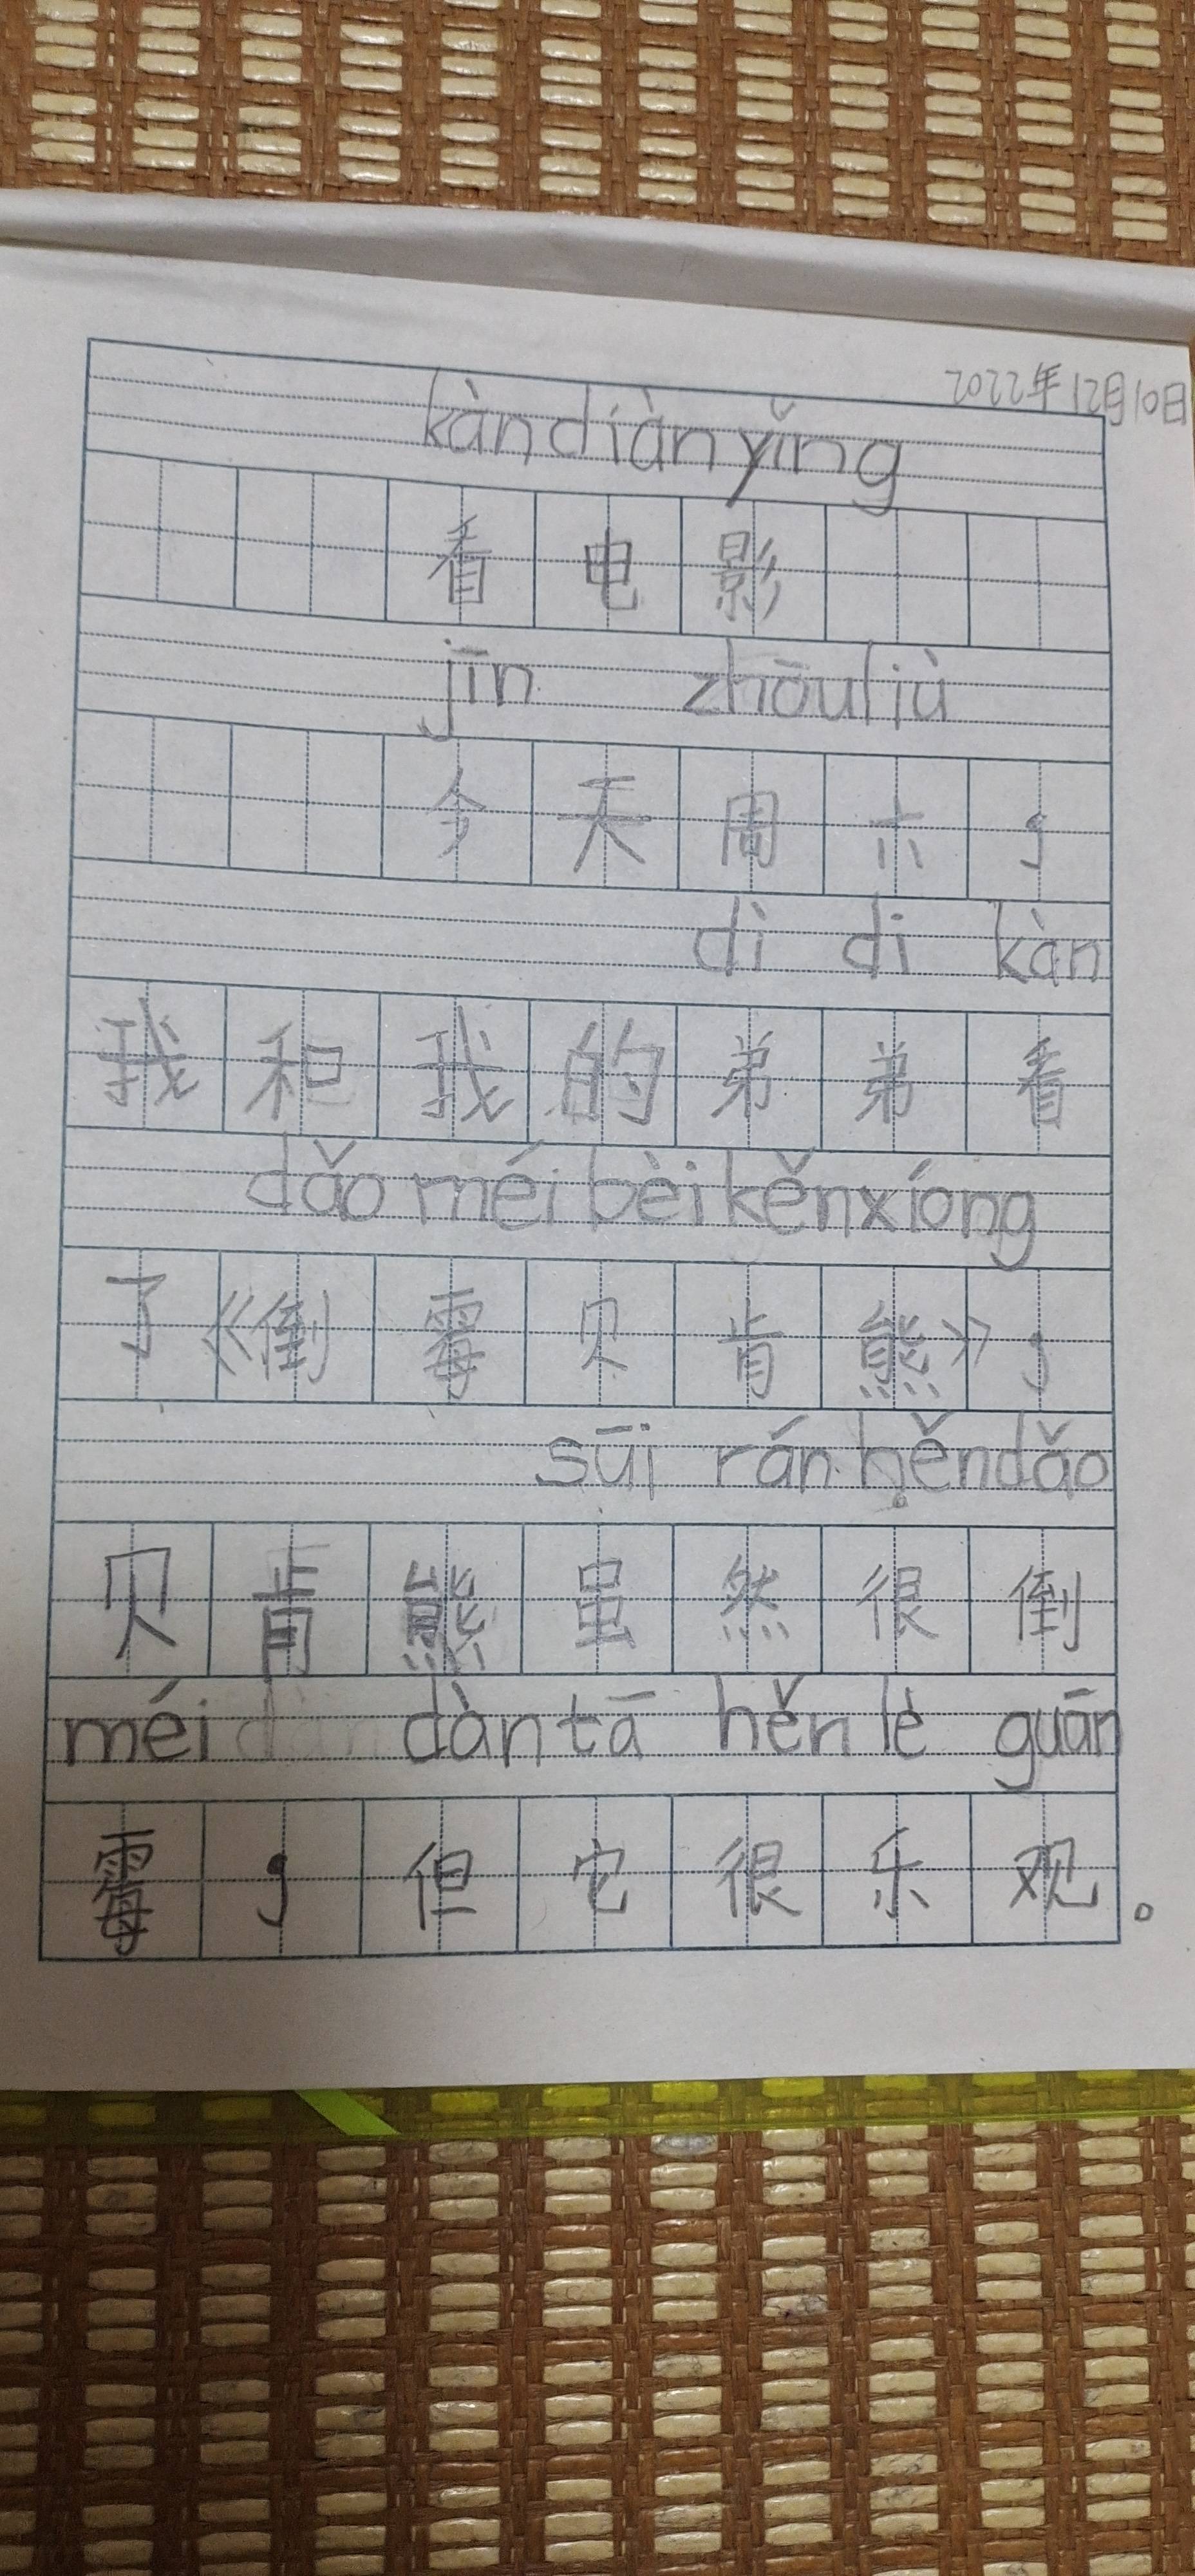 2022年12月10日
kàn diàn yǐng
看电影
jīn zhōu liù
今天周六，
dì di kàn
我和我的弟弟看
dǎo méi bèi kěn xíong
了《倒霉贝肯熊》，
sūi rán hěn dǎo
贝肯熊虽然很倒
méi dàn tā hěn lè guān
霉，但它很乐观。